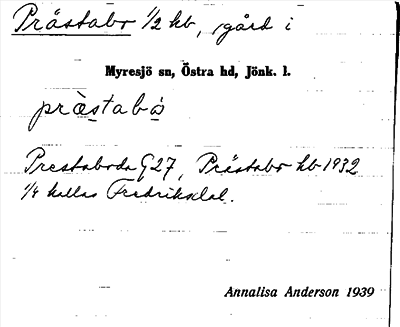 Prästabo 1/2 hb, gård i
Myresjö sn, Östra hd, Jönk. l.
præstabo
Prestaboda G27, Prästabo hb 1932
1/4 kallas Fredriksdal.
Annalisa Anderson 1939